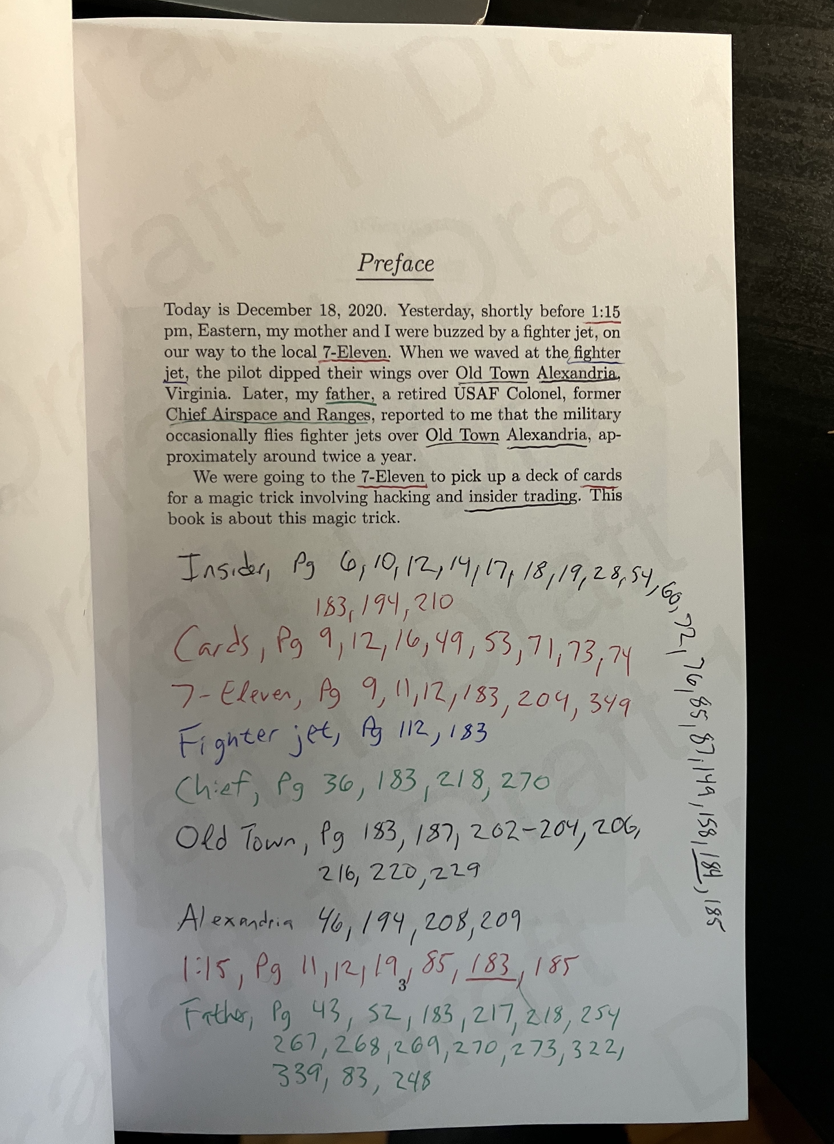 Preface
Today is December 18, 2020. Yesterday, shortly before 1:15
pm, Eastern, my mother and I were buzzed by a fighter jet, on
our way to the local 7-Eleven. When we waved at the fighter
jet, the pilot dipped their wings over Old Town Alexandria,
Virginia. Later, my father, a retired USAF Colonel, former
Chief Airspace and Ranges, reported to me that the military
occasionally flies fighter jets over Old Town Alexandria, ap-
proximately around twice a year.
We were going to the 7-Eleven to pick up a deck of cards
for a magic trick involving hacking and insider trading. This
book is about this magic trick.
Insider, Pg 6, 10, 12, 14, 17, 18, 19, 28, 54, 60, 72, 76, 85, 87, 149, 158, 184, 185
183, 194, 210
Cards, Pg 9, 12, 16, 49, 53, 71, 73, 74
7-Eleven, Pg 9, 11, 12, 183, 204, 349
Fighter jet, Pg 112, 183
Chief, Pg 36, 183, 218, 270
Old Town, Pg 183, 187, 202-204, 206,
216, 220, 229
Alexandria 46, 194, 208, 209
1:15, Pg 11, 12, 19, 85, 183, 185
3
Father, Pg 43, 52, 183, 217, 218, 254
267, 268, 269, 270, 273, 322,
339, 83, 248
Draft 1